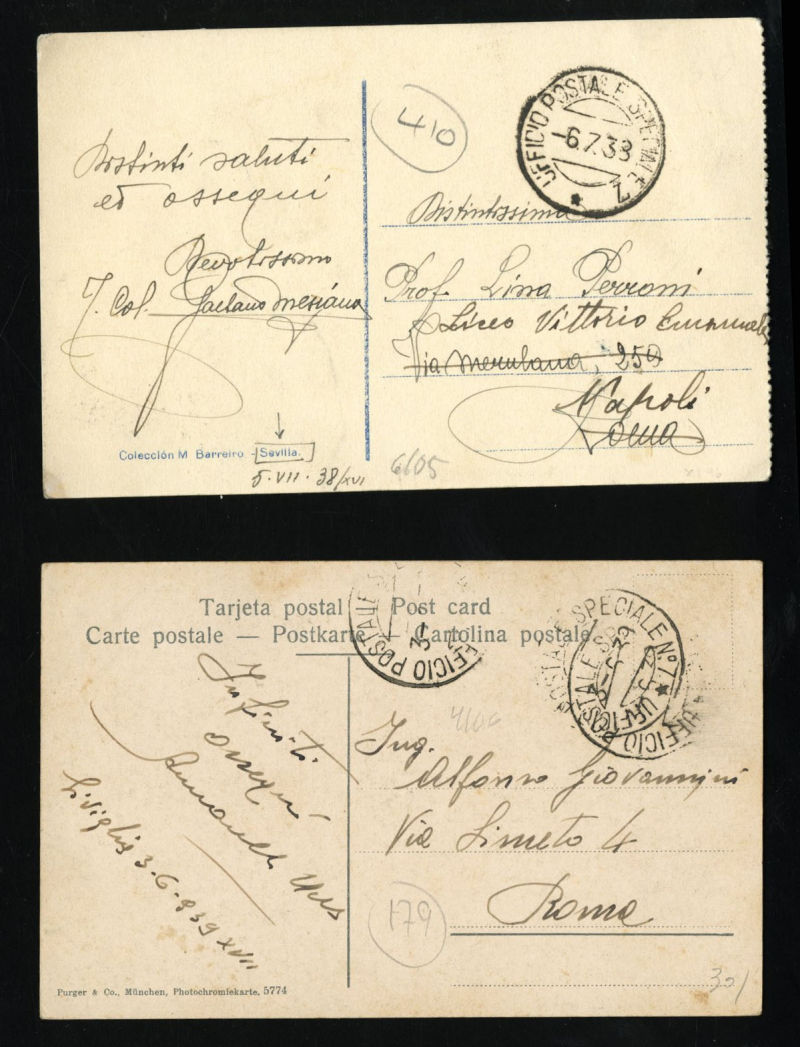 410
UFFICIO POSTALE SPECIALE Z
-6.7.38
saluti
ed ossequi
Devotissimo
Col. Gaetano Mesiano
Distintissima
Prof. Lina Perroni
Liceo Vittorio Emanuele
Via Merulana, 259
Napoli
Roma
Colección M Barreiro - Sevilla.
5.VII.38/XVI
6105
Tarjeta postal — Post card
Carte postale — Postkarte — Cartolina postale
UFFICIO POSTALE
UFFICIO POSTALE SPECIALE N.7
Infiniti
ossequi
Siviglia 3-6-939 XVII
Ing.
Alfonso Giovannini
Via Simeto 4
Roma
179
Purger & Co., München, Photochromiekarte. 5774